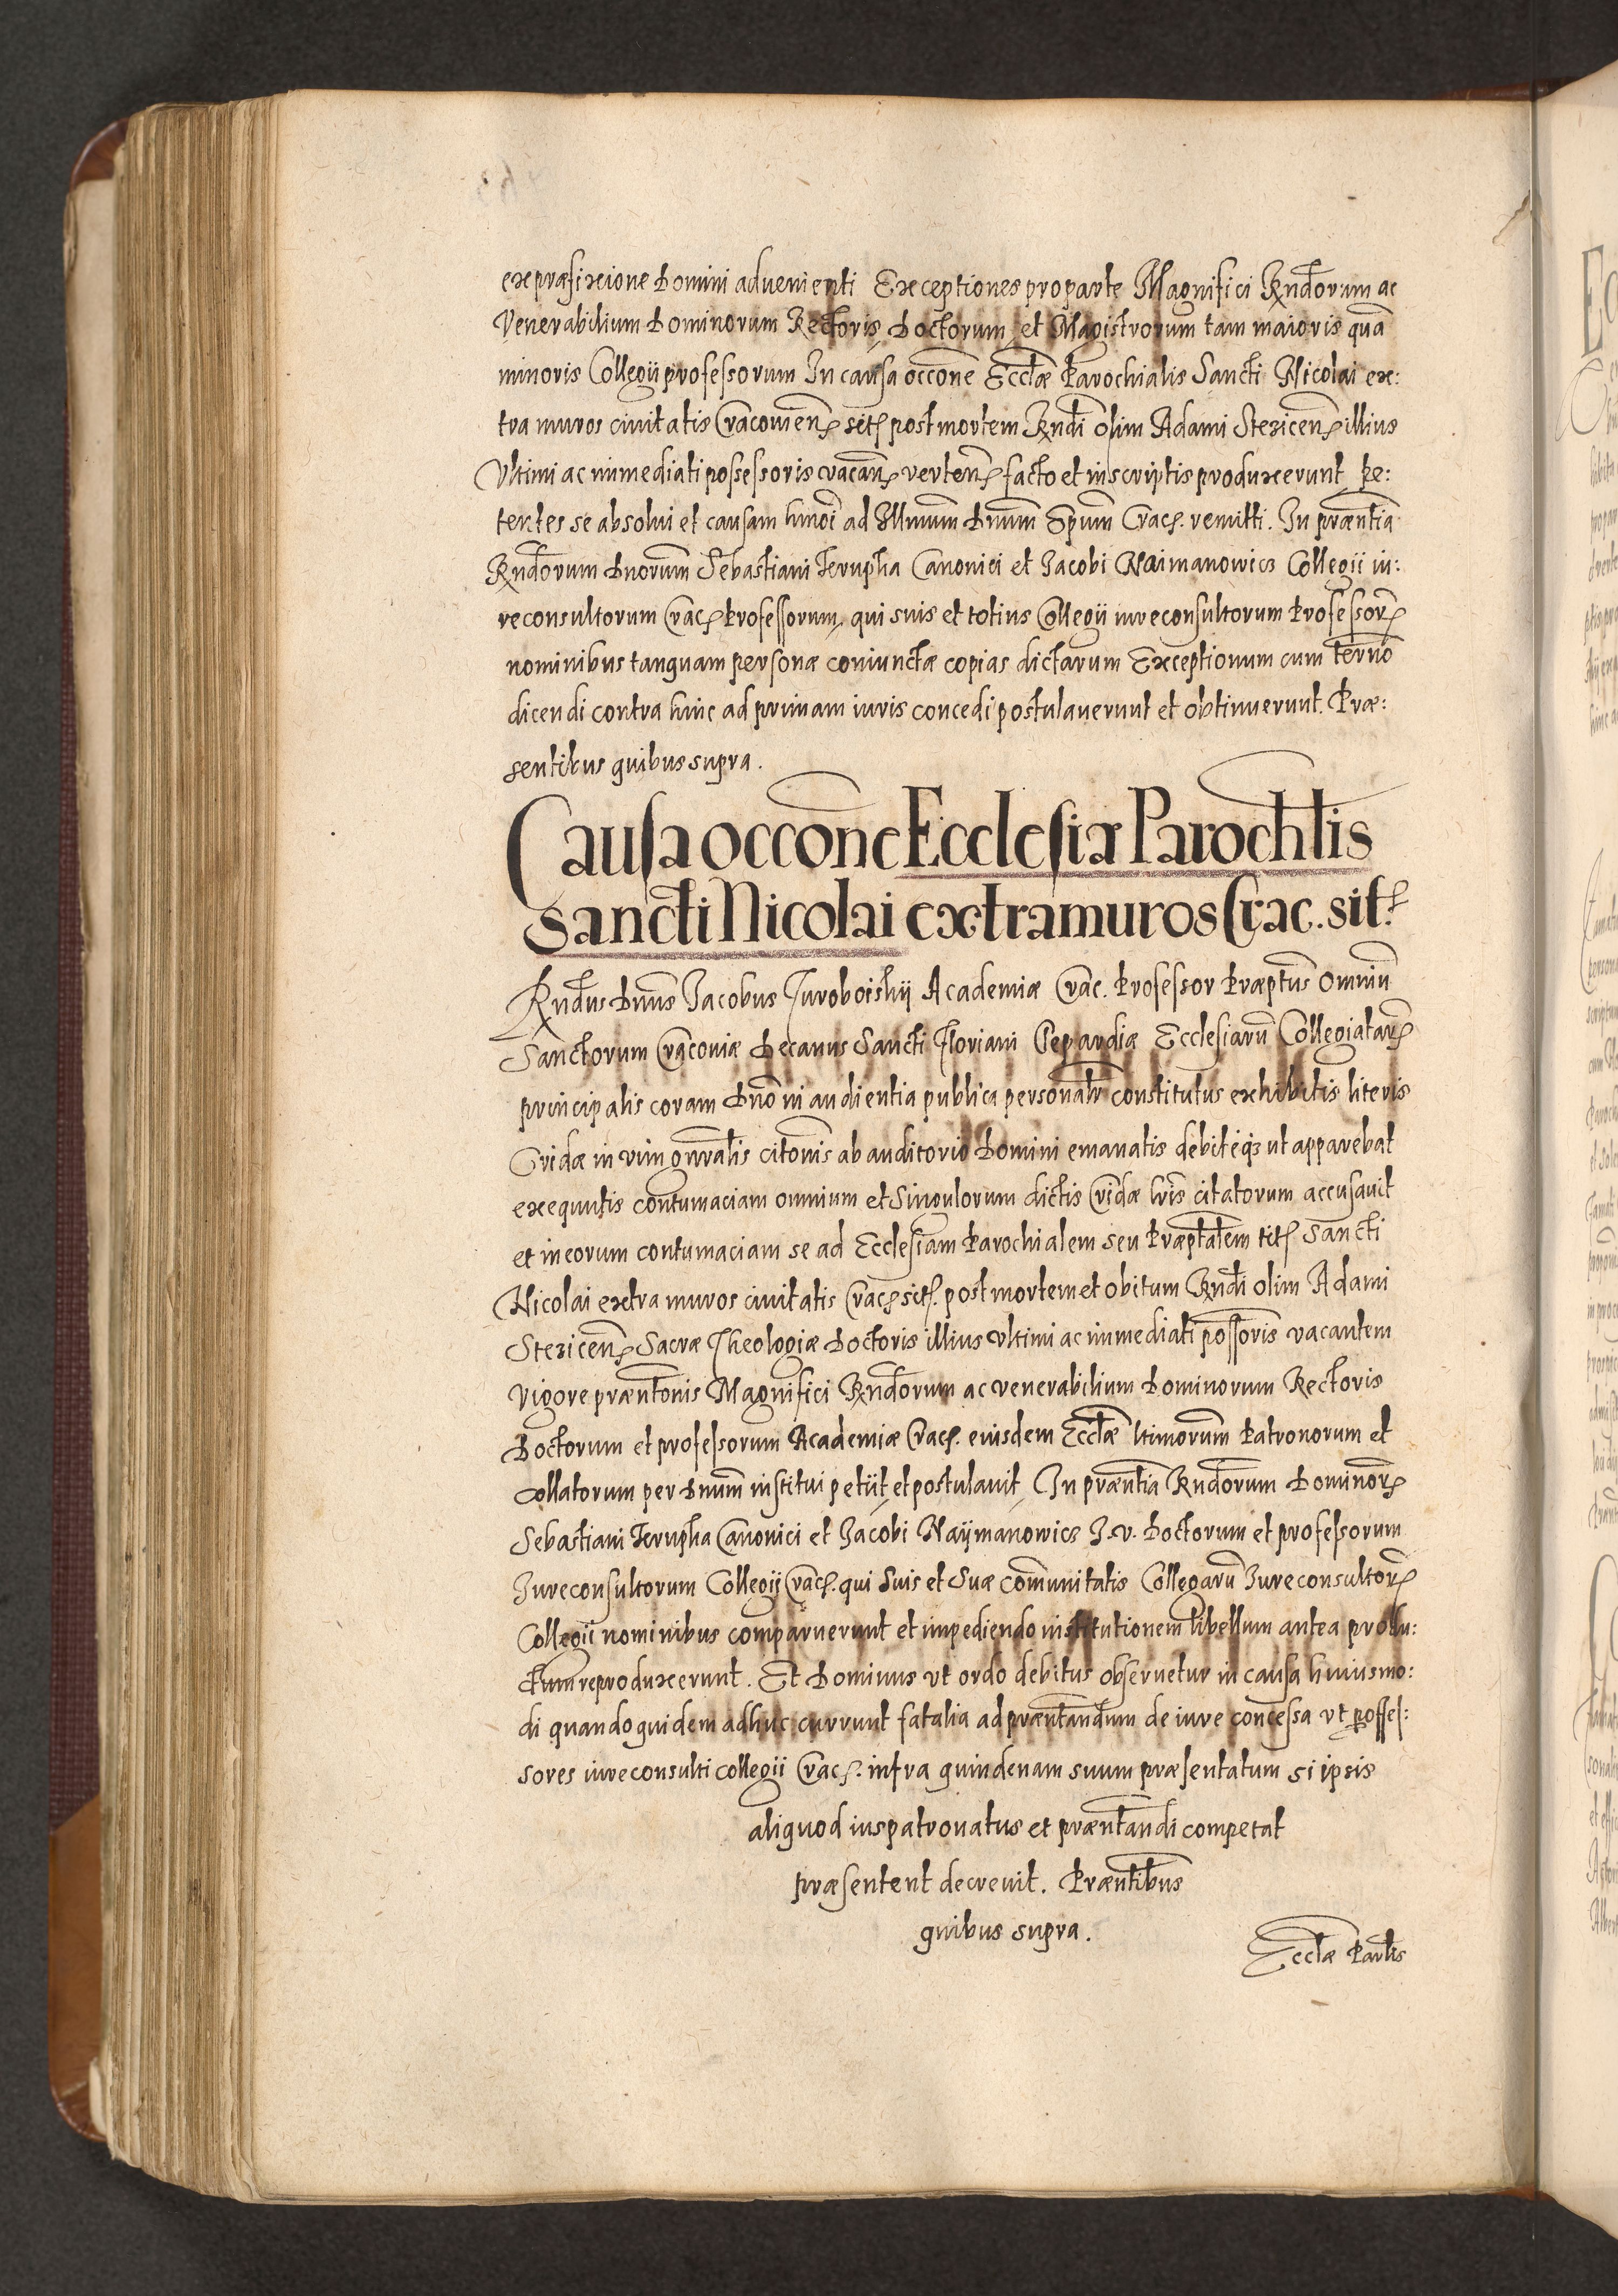 ex præfixione Domini advenienti Exceptiones pro parte Magnifici Rndorum ac
Venerabilium Dominorum Rectoris, Doctorum, et Magistrorum tam maioris quā
minoris Collegii professorum In causa occōne Ecclæ Parochialis Sancti Nicolai ex:
tra muros civitatis Cracovieñ sit. post mortem Rndi olim Adami Steziceñ illius
Vltimi ac immediati possessoris vacañ verteñ facto et in scriptis produxerunt Pe:
tentes se absolui et causam hmōi ad Illmum Dnum Epum Crac. remitti. In præntia
Rndorum Dnorum Sebastiani Krupka Canonici et Jacobi Naimanowicz Collegii iu:
reconsultorum Crac. Professorum, qui suis et totius Collegii iureconsultorum Professor.
nominibus tanquam personæ coniunctæ copias dictarum Exceptionum cum termo
dicendi contra hinc ad primam iuris concedi postulauerunt et obtinuerunt. Præ:
sentibus quibus supra.
Causa occōne Ecclesiæ Parochlis
Sancti Nicolai extra muros Crac. sit.
Rndus Dnus Jacobus Turoboiskij Academiæ Crac. Professor Præptus Omniū
Sanctorum Cracoviæ Decanus Sancti Floriani Clepardiæ Ecclesiarū Collegiatar.
principalis coram Dno in audientia publica personalr constitutus exhibitis literis
Cridæ in vim gnralis citonis ab auditorio Domini emanatis debiteq; ut apparebat
exequutis contumaciam omnium et Singulorum dictis Cridæ lris citatorum accusauit
et in eorum contumaciam se ad Ecclesiam Parochialem seu Præptalem tit. Sancti
Nicolai extra muros civitatis Crac. sit. post mortem et obitum Rndi olim Adami
Steziceñ Sacræ Theologiæ Doctoris illius vltimi ac immediati possoris vacantem
vigore præntonis Magnifici Rndorum ac venerabilium Dominorum Rectoris
Doctorum et professorum Academiæ Crac. eiusdem Ecclæ ltimorum Patronorum et
Collatorum per Dnum institui petiit et postulauit, In præntia Rndorum Dominor.
Sebastiani Krupka Canonici et Jacobi Naijmanowicz I. v. Doctorum et professorum
Iureconsultorum Collegij Crac. qui Suis et Suæ communitatis Collegarū Iureconsultor.
Collegii nominibus comparuerunt et impediendo institutionem libellum antea produ:
ctum reproduxerunt. Et Dominus vt ordo debitus obseruetur in causa huiusmo:
di quandoquidem adhuc currunt fatalia ad præntandum de iure concessa vt proffes:
sores iureconsulti collegii Crac. infra quindenam suum præsentatum si ipsis
aliquod ius patronatus et præntandi competat
præsentent decreuit. Præntibus
quibus supra.
Ecclæ Parlis